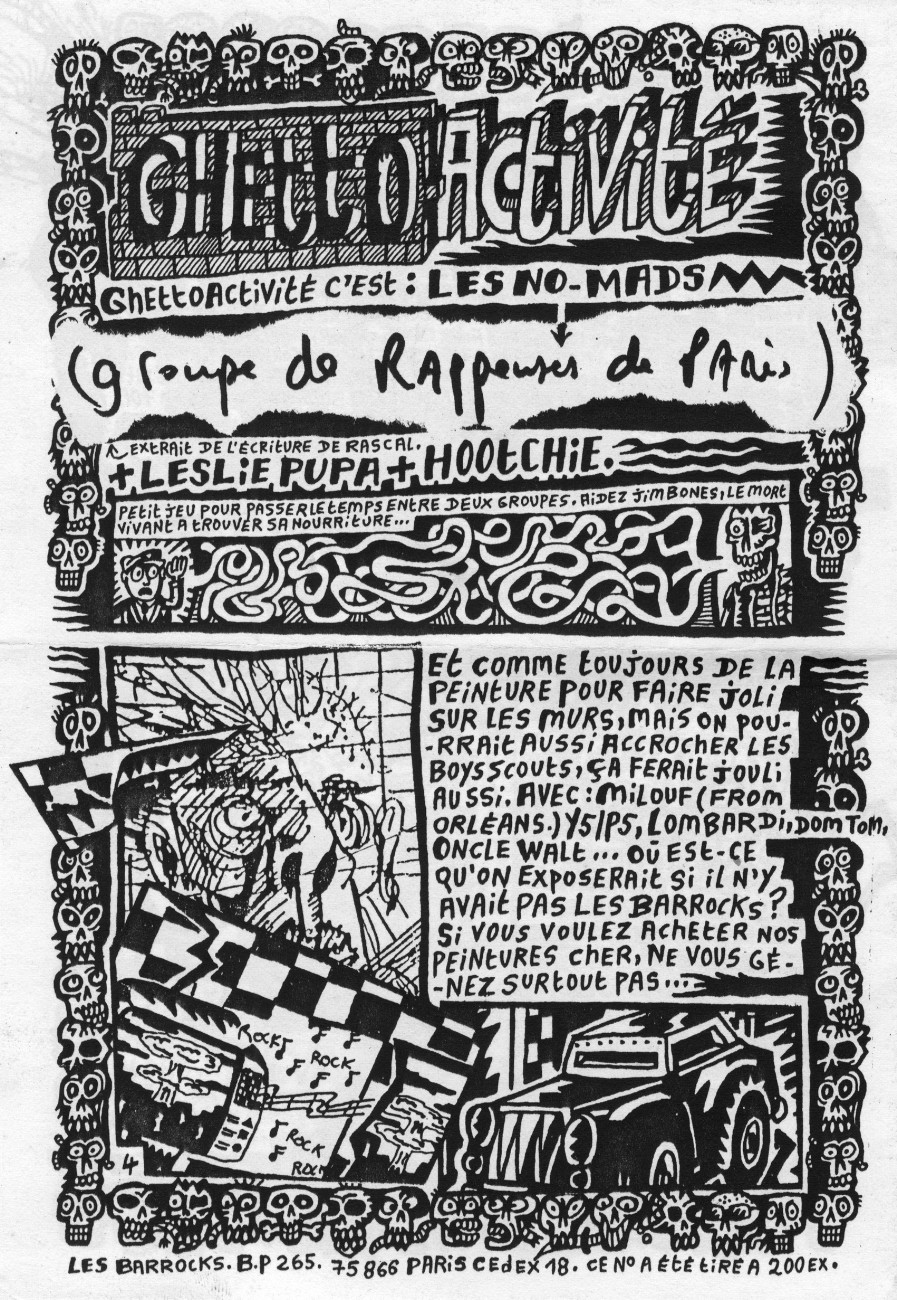 GHETTO ACTIVITÉ
GHETTOACTIVITÉ C'EST : LES NO-MADS
(groupe de RAppeuses de PARis)
EXTRAIT DE L'ÉCRITURE DE RASCAL.
+ LESLIE PUPA + HOOTCHIE.
PETIT JEU POUR PASSER LE TEMPS ENTRE DEUX GROUPES. AIDEZ JIM BONES, LE MORT
VIVANT A TROUVER SA NOURRITURE...
ET COMME TOUJOURS DE LA
PEINTURE POUR FAIRE JOLI
SUR LES MURS, MAIS ON POU-
-RRAIT AUSSI ACCROCHER LES
BOYS SCOUTS, ÇA FERAIT JOULI
AUSSI. AVEC : MILOUF (FROM
ORLÉANS.) Y5/P5, LOMBARDI, DOM TOM,
ONCLE WALT... OÙ EST-CE
QU'ON EXPOSERAIT SI IL N'Y
AVAIT PAS LES BARROCKS ?
SI VOUS VOULEZ ACHETER NOS
PEINTURES CHER, NE VOUS GÉ-
-NEZ SURTOUT PAS...
ROCK
ROCK
ROCK
ROCK
4
LES BARROCKS. B.P 265. 75866 PARIS CEDEX 18. CE NO A ÉTÉ TIRÉ A 200 EX.